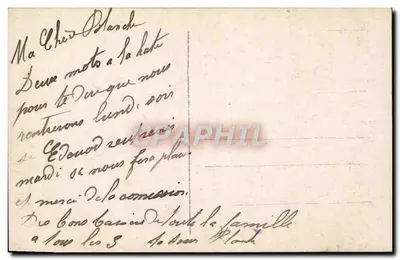 Ma Chère Blanche
Deux mots a la hate
pour te dire que nous
rentrerons lundi soir
si Edouard
mardi sa nous fera
et merci de la commission
Des bons de toute la famille
a tous les 3 ta Soeur
CPAPHIL.COM